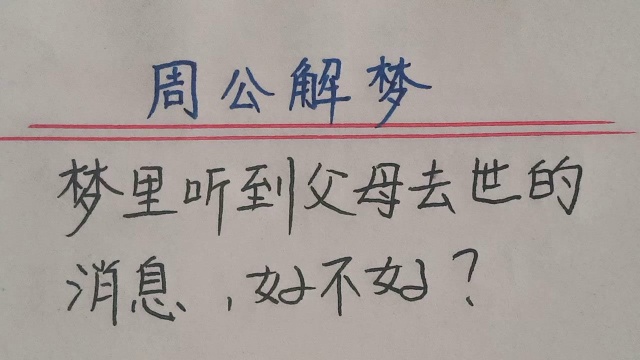 周公解梦
梦里听到父母去世的
消息,好不好?